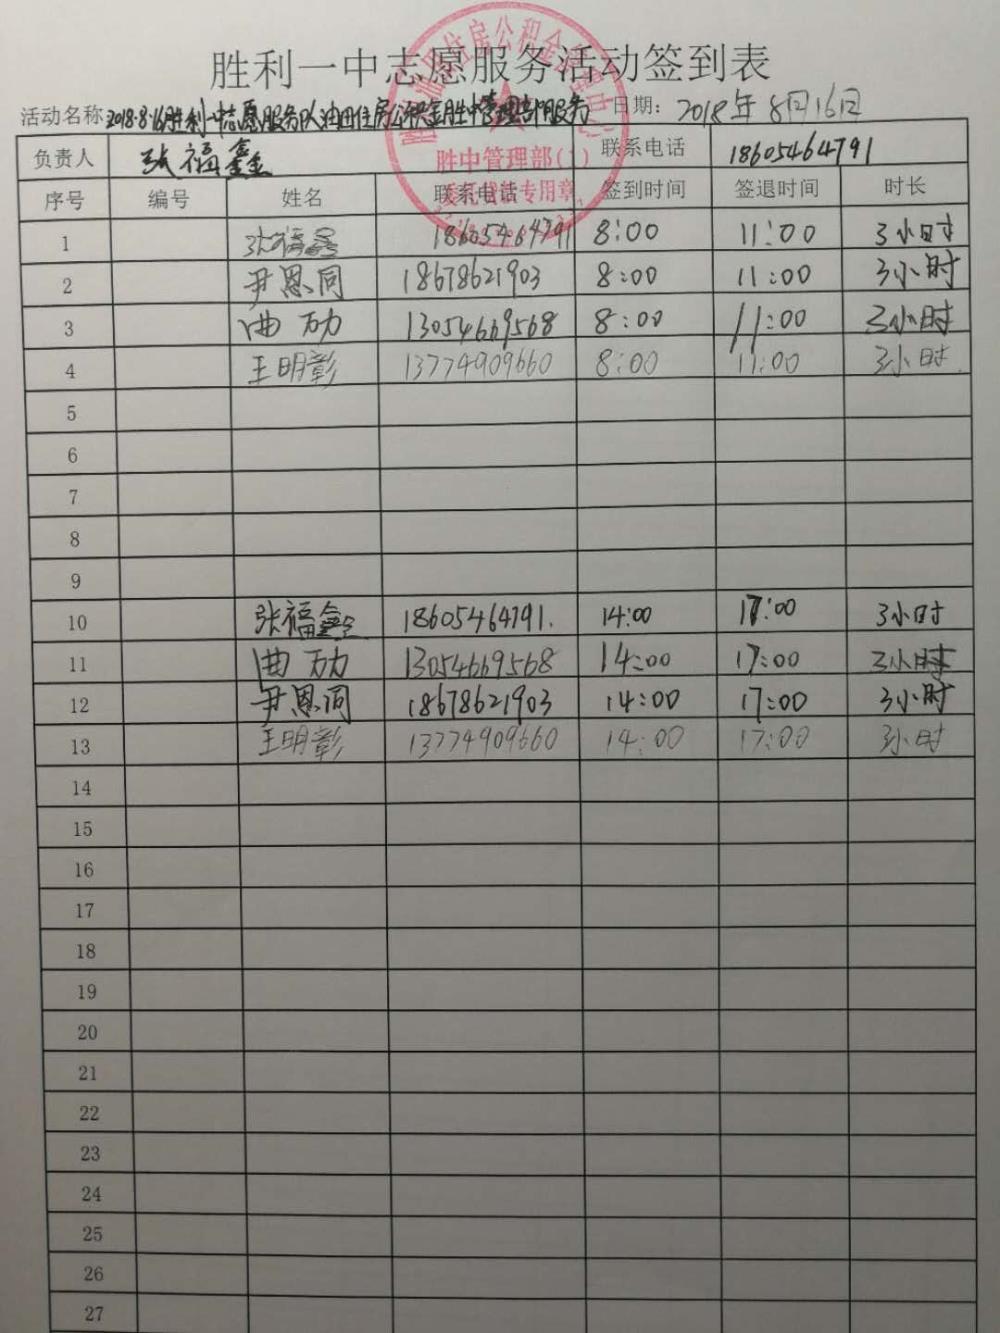 胜利一中志愿服务活动签到表
活动名称 2018.8.16胜利一中志愿服务队油田住房公积金胜中管理部服务 日期: 2018年8月16日
住房公积金
胜中管理部(1)
专用章
负责人 张福鑫 联系电话 18605464791
序号 编号 姓名 联系电话 签到时间 签退时间 时长
1 张福鑫 18605464791 8:00 11:00 3小时
2 尹恩同 18678621903 8:00 11:00 3小时
3 曲劢 13054669568 8:00 11:00 3小时
4 王明彰 13774909660 8:00 11:00 3小时.
5
6
7
8
9
10 张福鑫 18605464791. 14:00 17:00 3小时
11 曲劢 13054669568 14:00 17:00 3小时
12 尹恩同 18678621903 14:00 17:00 3小时
13 王明彰 13774909660 14:00 17:00 3小时
14
15
16
17
18
19
20
21
22
23
24
25
26
27